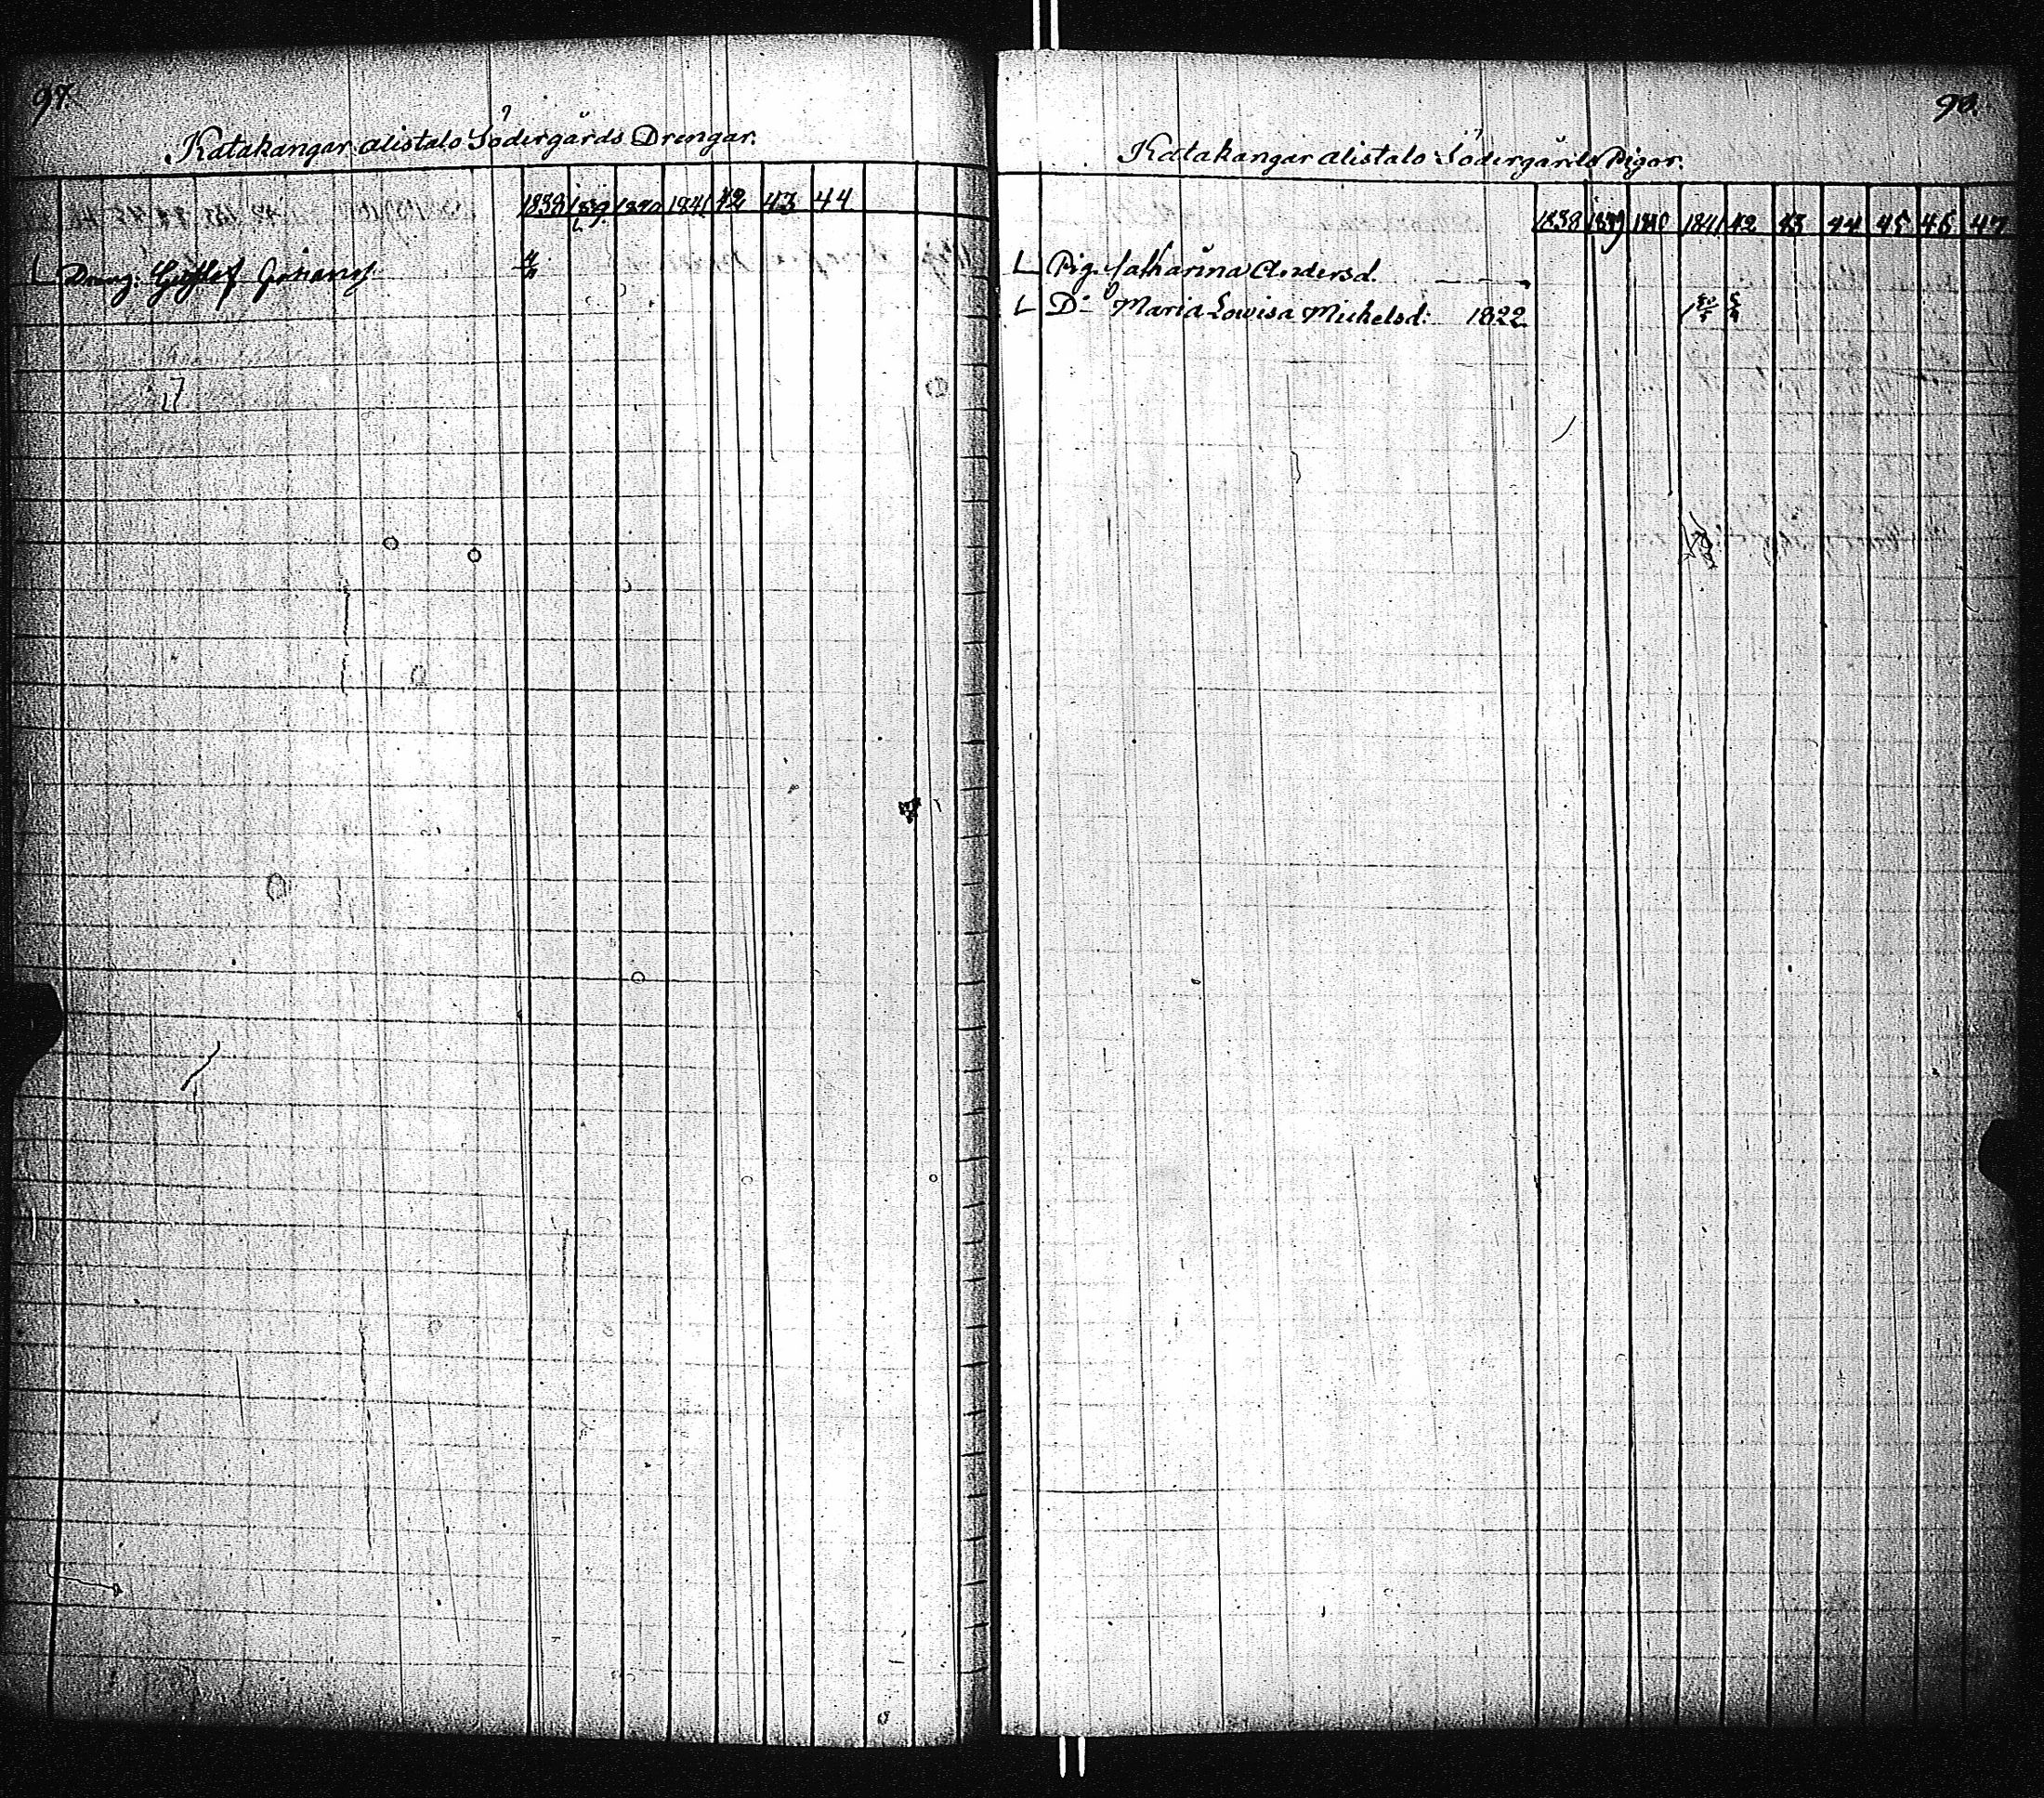 97.
Katakangar alistalo Södergårds Drengar.
1838 1839 1840 1841 42 43 44
L Dreng. Gustaf Johans
98.
Katakangar alistalo Södergårds Pigor.
1838 1839 1840 1841 42 43 44 45 46 47
L Pig. Catharina Andersd.
L Do Maria Lowisa Michelsd: 1822